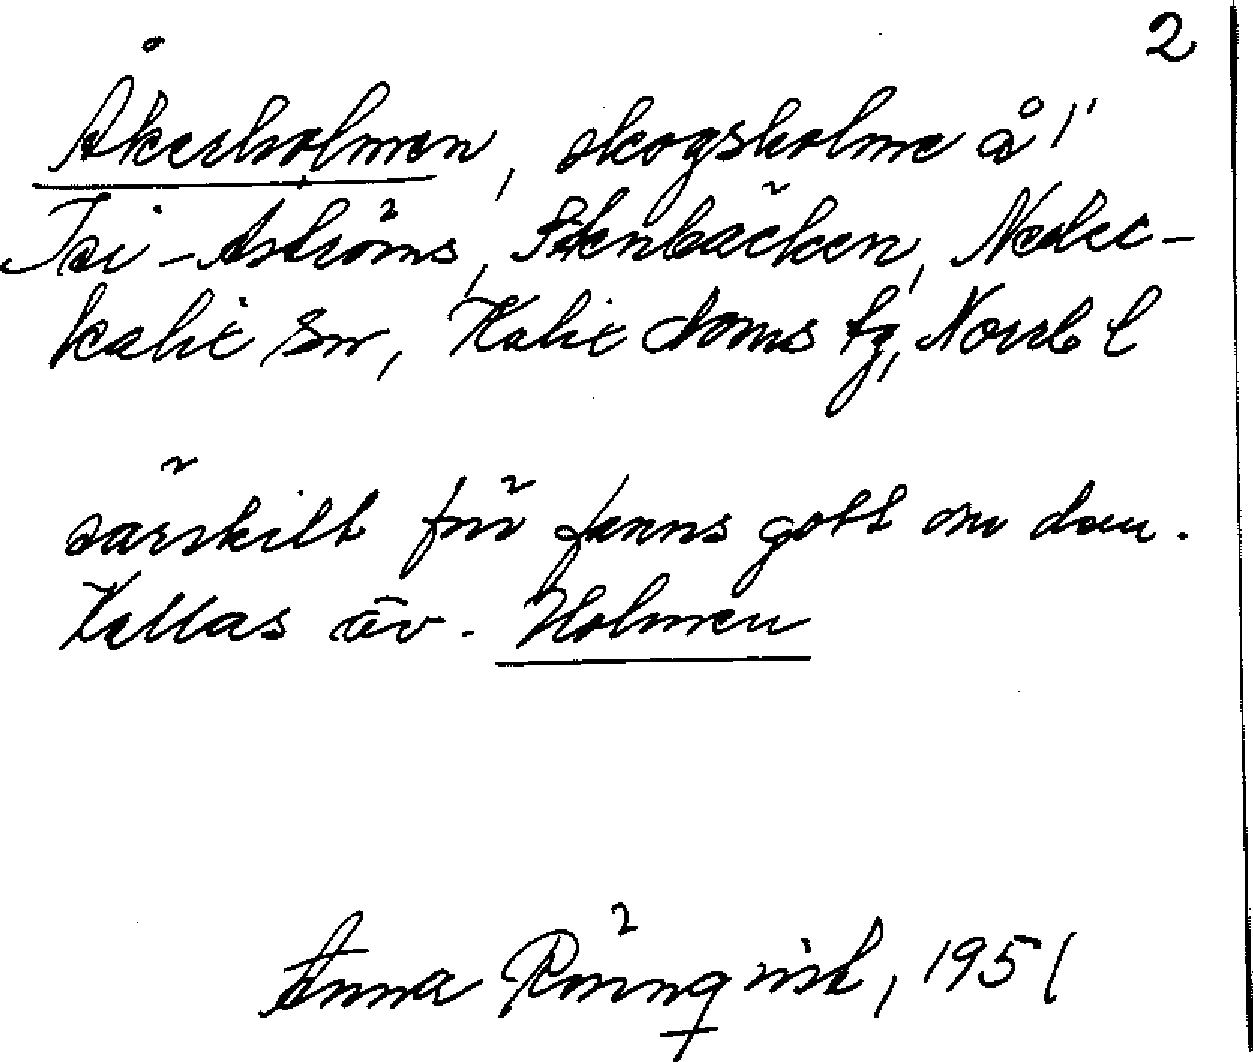 2
Åkerholmen, skogsholme å 1
Isi-Aströms, Stenbäcken, Neder-
kalix sn, Kalix doms tg, Norrb l
särskilt för fanns gott om dem.
Kallas äv. Holmen
Anna Rönnqvist, 1951